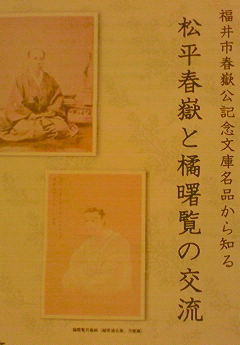 福井市春嶽公記念文庫名品から知る
松平春嶽と橘曙覧の交流